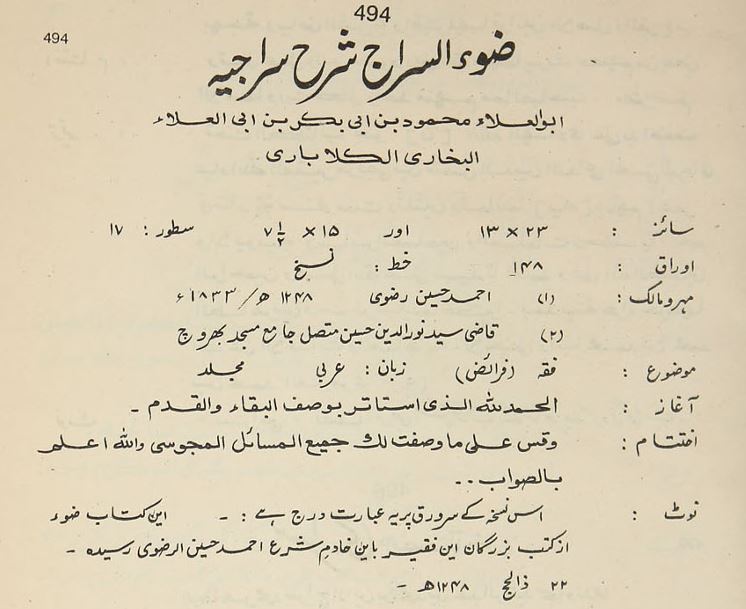 494
494
ضوء السراج شرح سراجیہ
ابوالعلاء محمود بن ابی بکر بن ابی العلاء
البخاری الکلاباری
سائز : ۲۳ × ۱۳ اور ۱۵ × ۷ ۱/۲ سطور : ۱۷
اوراق : ۱۴۸ خط : نسخ
مہر و مالک : (۱) احمد حسین رضوی ۱۲۴۸ ھ/۱۸۳۳ء
(۲) قاضی سید نورالدین حسین متصل جامع مسجد بھروچ
موضوع : فقہ (فرائض) زبان : عربی مجلد
آغاز : الحمد للہ الذی استاثر بوصف البقاء والقدم ۔
اختتام : وقس علی ما وصفت لك جمیع المسائل المجوسی واللہ اعلم
بالصواب ..
نوٹ : اس نسخہ کے سرورق پر یہ عبارت درج ہے : ۔ این کتاب ضوء
از کتب بزرگان این فقیر باین خادم شرع احمد حسین الرضوی رسیدہ ۔
۲۲ ذالحج ۱۲۴۸ھ ۔